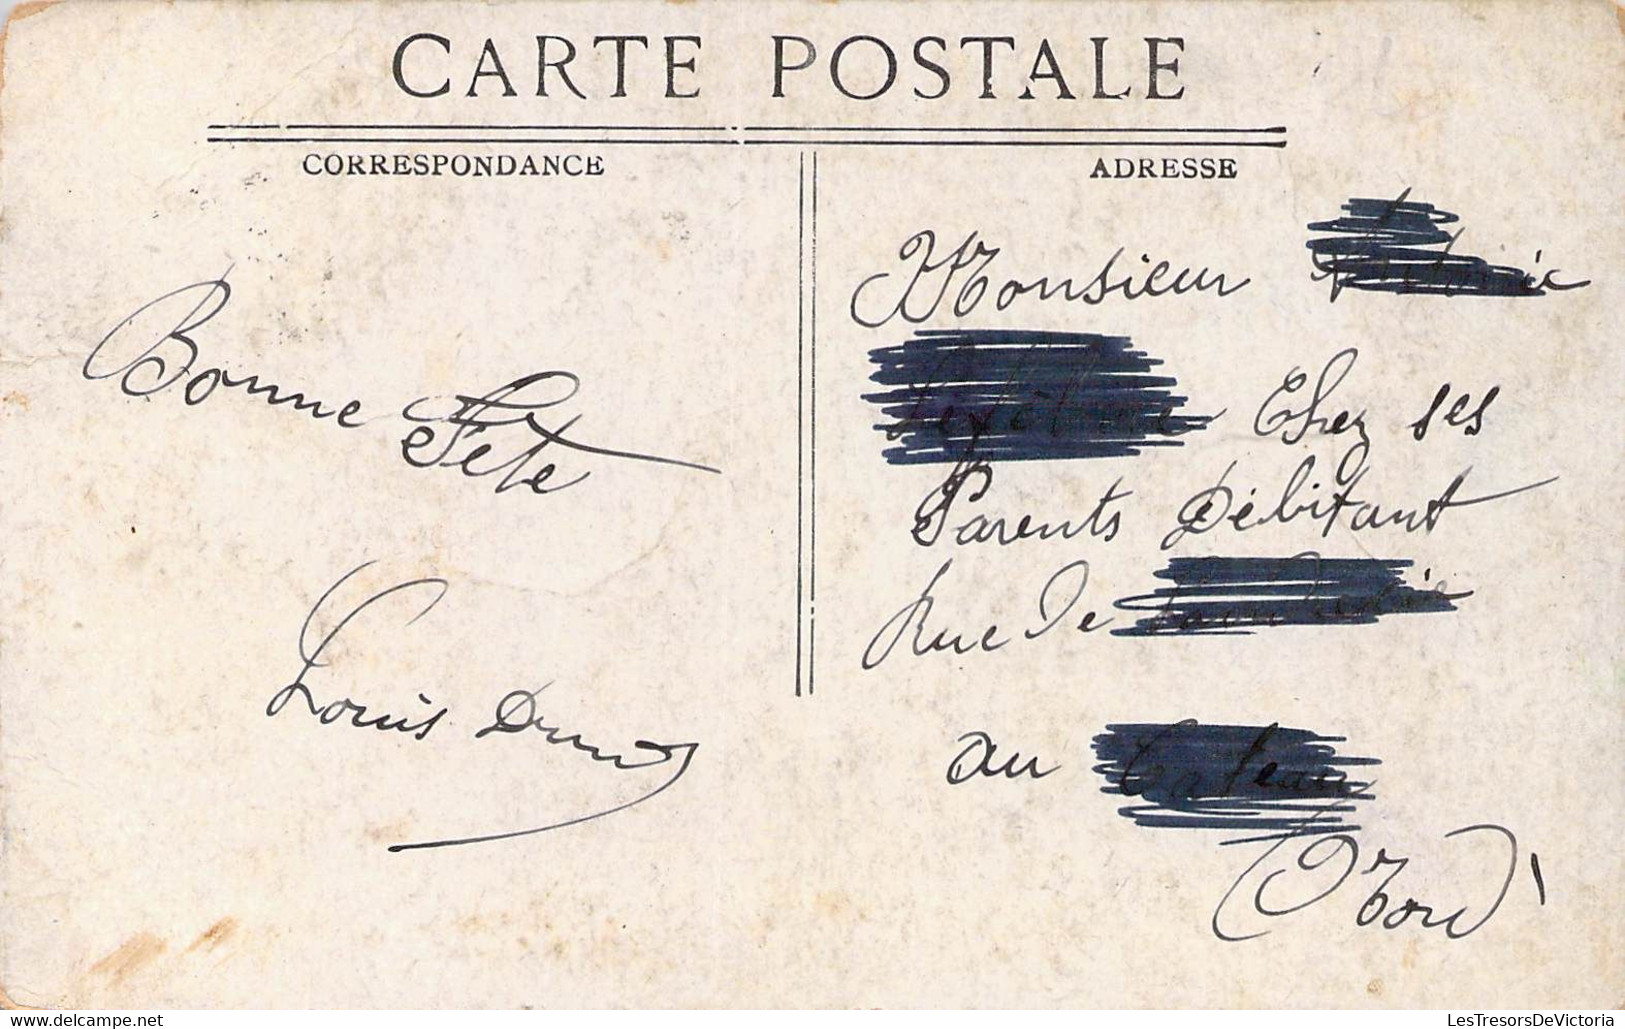 CARTE POSTALE
CORRESPONDANCE
ADRESSE
Bonne Fête
Louis
Monsieur
Chez ses
Parents Débitant
Rue De
au
(Nord)
www.delcampe.net
LesTresorsDeVictoria